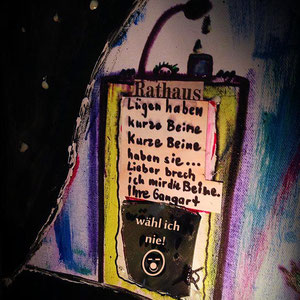 Rathaus
Lügen haben
kurze Beine
Kurze Beine
haben sie...
Lieber brech
ich mir die Beine.
Ihre Gangart
wähl ich
nie!